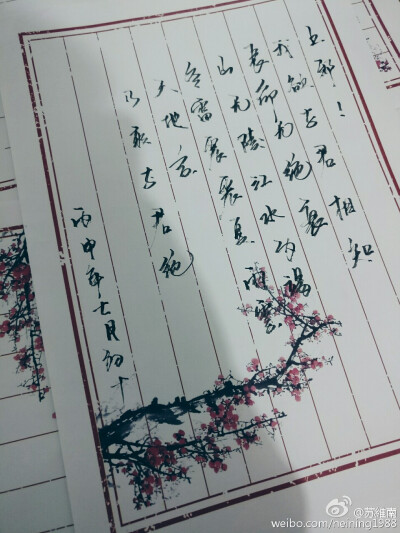 上邪!
我欲与君相知
长命无绝衰
山无陵江水为竭
冬雷震震夏雨雪
天地合
乃敢与君绝
丙申年七月初十
@苏维南
weibo.com/neining1988